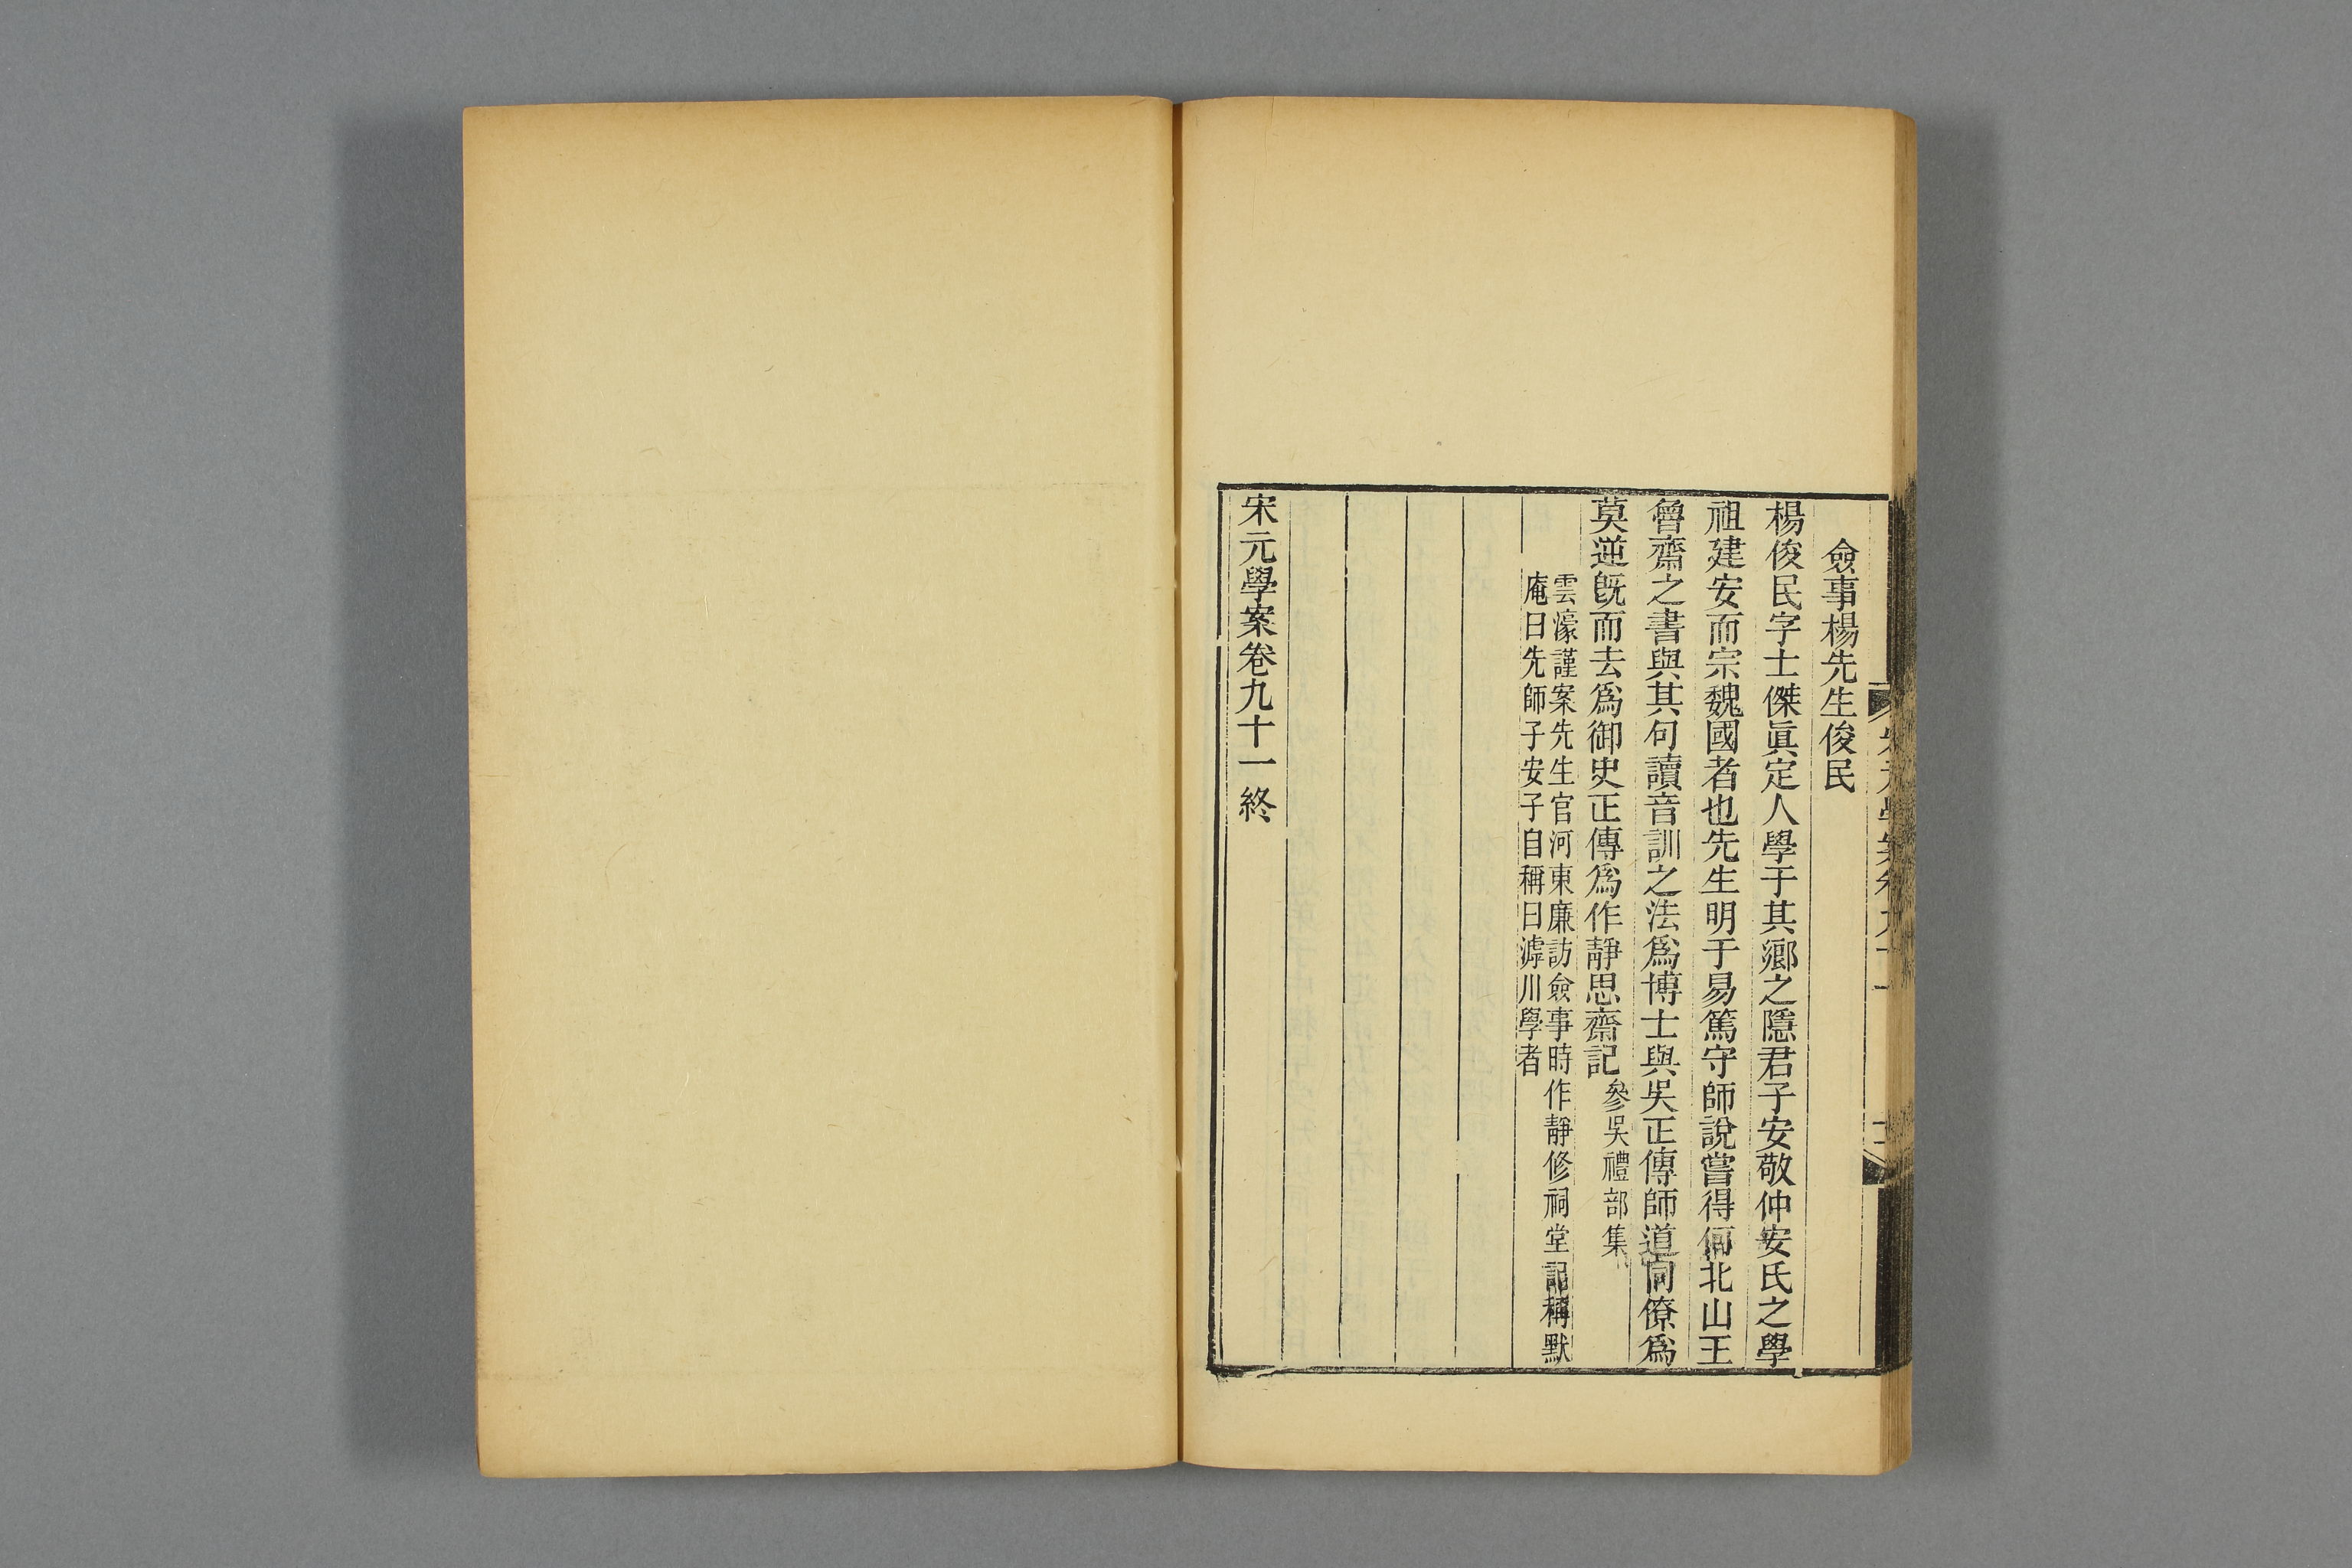 僉事楊先生俊民
楊俊民字士傑眞定人學于其鄉之隱君子安敬仲安氏之學
祖建安而宗魏國者也先生明于易篤守師說嘗得何北山王
魯齋之書與其句讀音訓之法爲博士與吳正傳師道同僚爲
莫逆旣而去爲御史正傳爲作靜思齋記參吳禮部集
雲濠謹案先生官河東廉訪僉事時作靜修祠堂記稱默
庵曰先師子安子自稱曰滹川學者
宋元學案卷九十一終